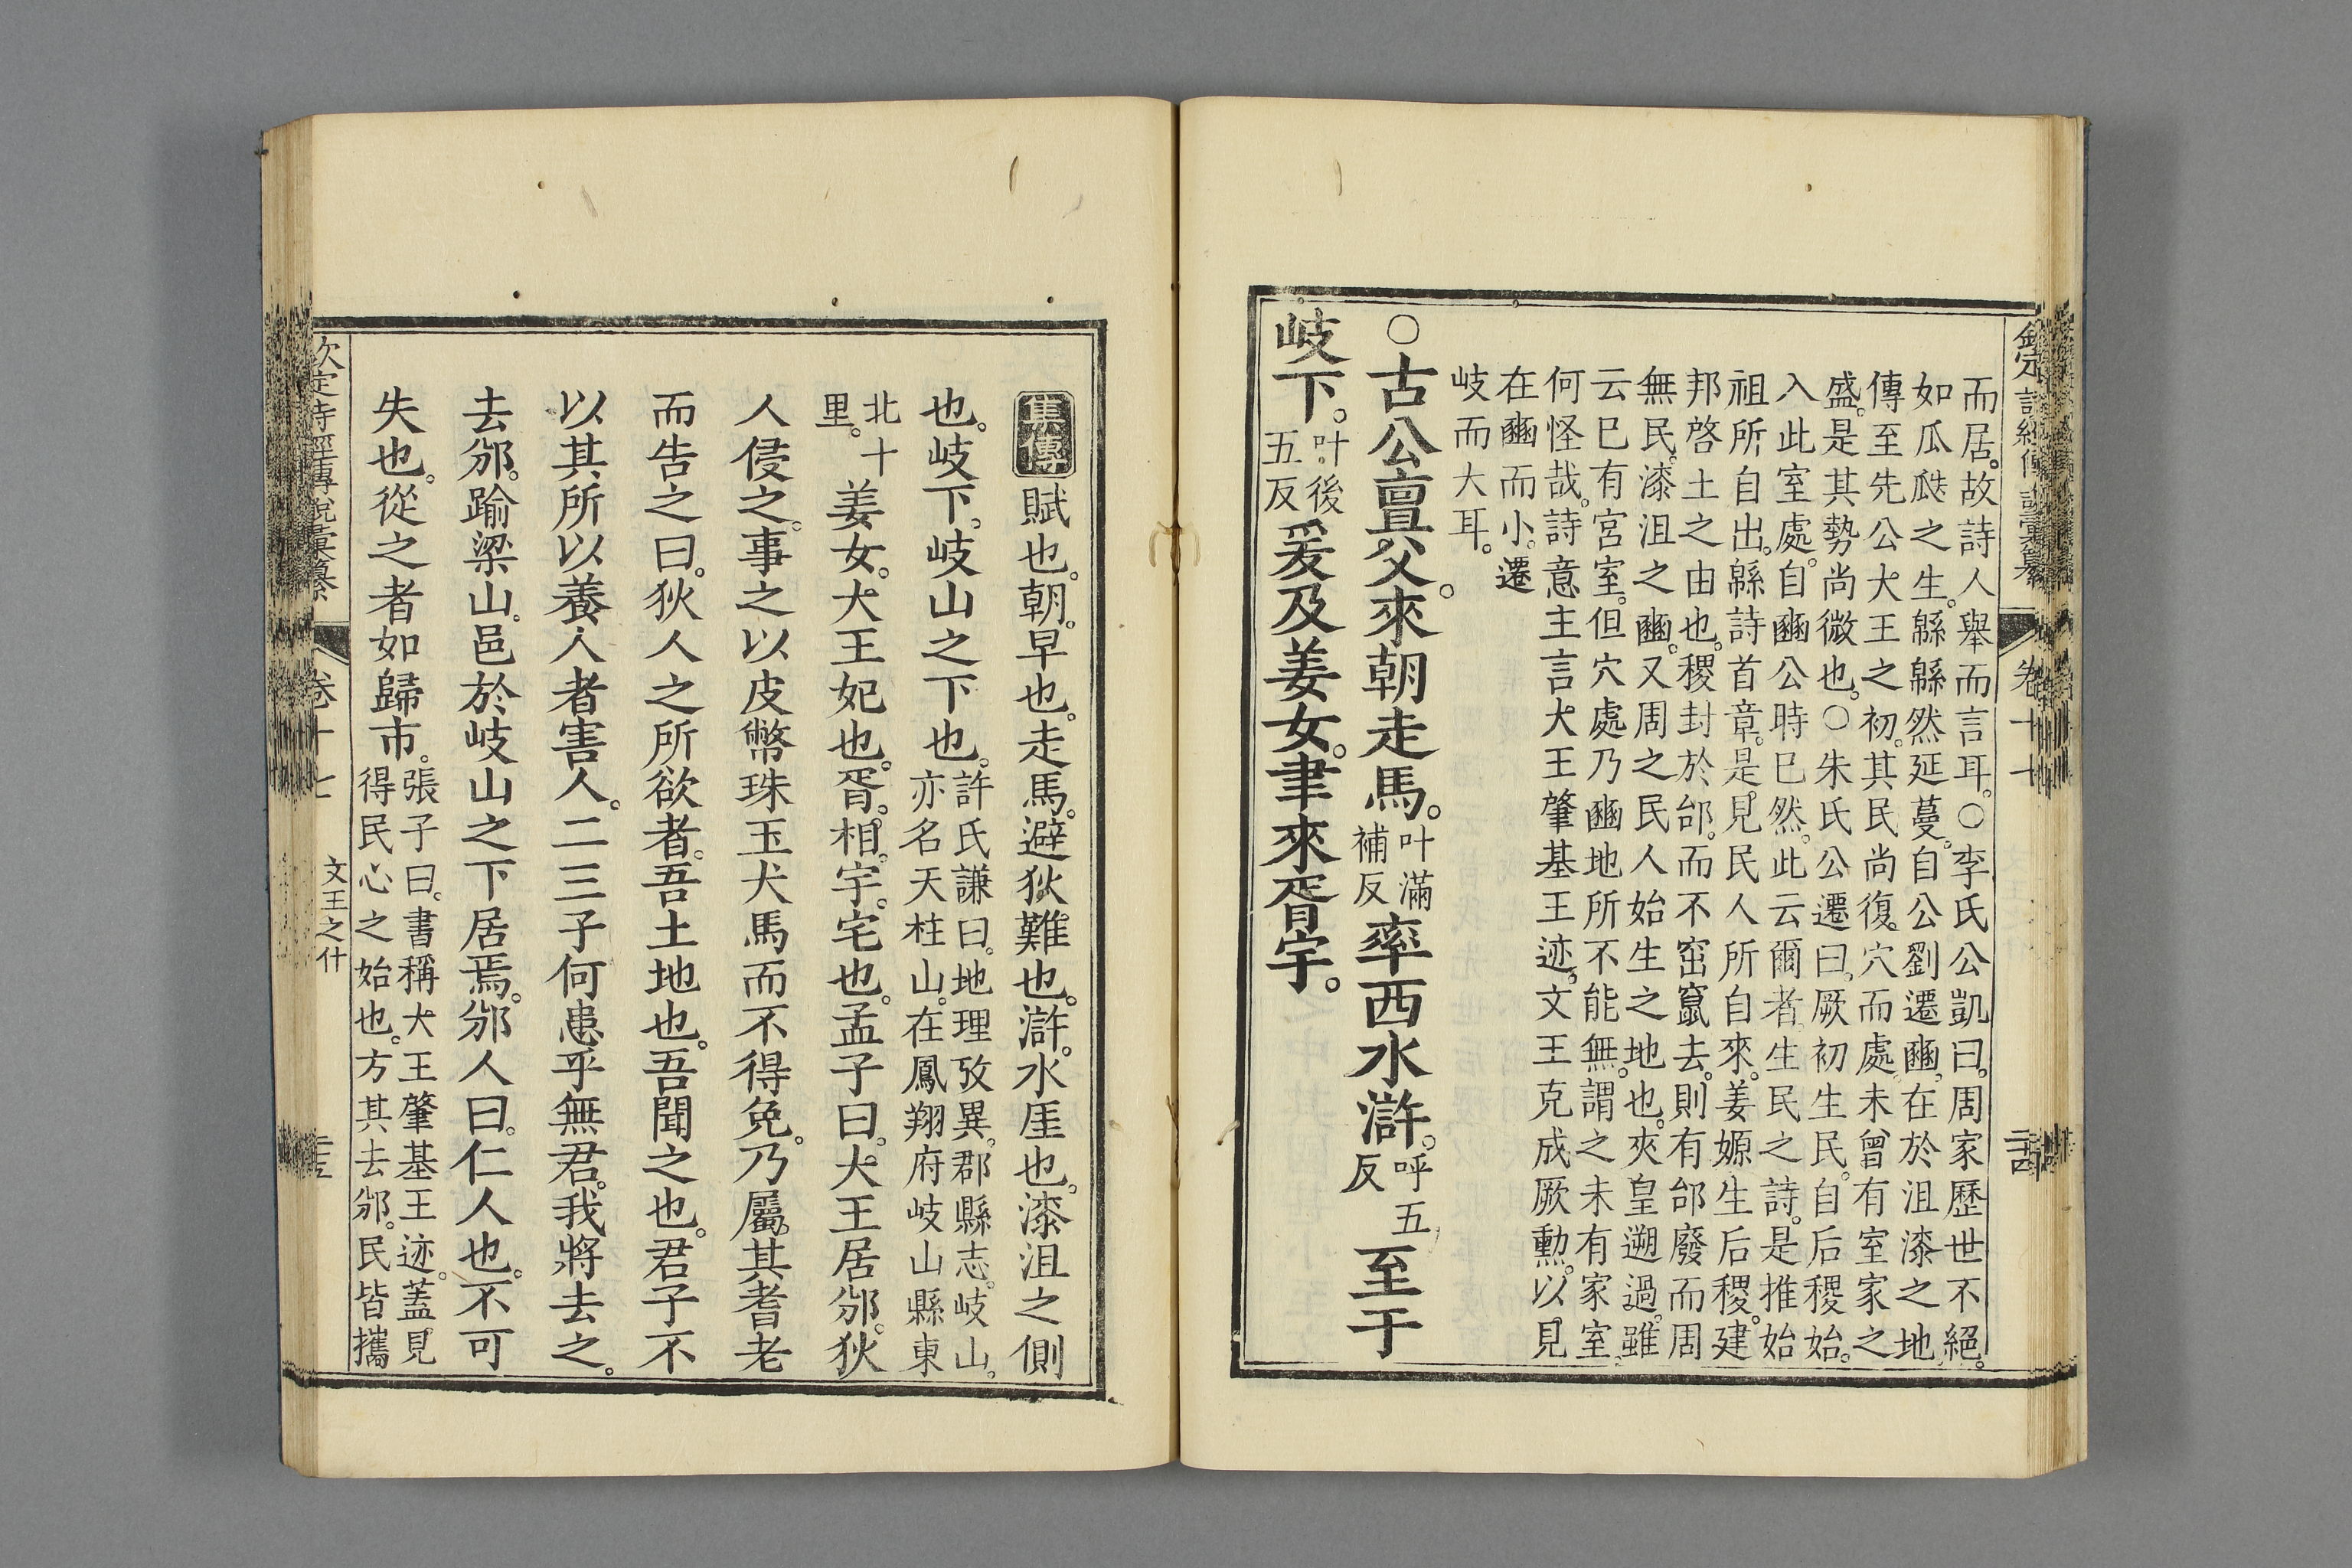 而居。故詩人舉而言耳。○李氏公凱曰。周家歷世不絕。
如瓜瓞之生。緜緜然延蔓。自公劉遷豳。在於沮漆之地
傳至先公大王之初。其民尚復。穴而處。未曾有室家之
盛。是其勢尚微也。○朱氏公遷曰。厥初生民。自后稷始。
入此室處。自豳公時巳然。此云爾者。生民之詩。是推始
祖所自出。緜詩首章。是見民人所自來。姜嫄生后稷。建
邦啓土之由也。稷封於邰。而不窋竄去。則有邰廢而周
無民。漆沮之豳。又周之民人始生之地也。夾皇遡過。雖
云巳有宮室。但穴處乃豳地所不能無。謂之未有家室。
何怪哉。詩意主言大王肇基王迹。文王克成厥勳。以見
在豳而小。遷
岐而大耳。
○古公亶父。來朝走馬。叶滿補反率西水滸。呼五反至于
岐下。叶後五反爰及姜女。聿來胥宇。
集傳賦也。朝。早也。走馬。避狄難也。滸。水厓也。漆沮之側
也。岐下。岐山之下也。許氏謙曰。地理攷異。郡縣志。岐山。亦名天柱山。在鳳翔府岐山縣東
北十里。姜女。大王妃也。胥。相。宇。宅也。孟子曰。大王居邠。狄
人侵之。事之以皮幣珠玉犬馬而不得免。乃屬其耆老
而告之曰。狄人之所欲者。吾土地也。吾聞之也。君子不
以其所以養人者害人。二三子何患乎無君。我將去之。
去邠。踰梁山。邑於岐山之下居焉。邠人曰。仁人也。不可
失也。從之者如歸市。張子曰。書稱大王肇基王迹。蓋見得民心之始也。方其去邠。民皆攜
欽定詩經傳說彙纂 卷十七 文王之什 三五